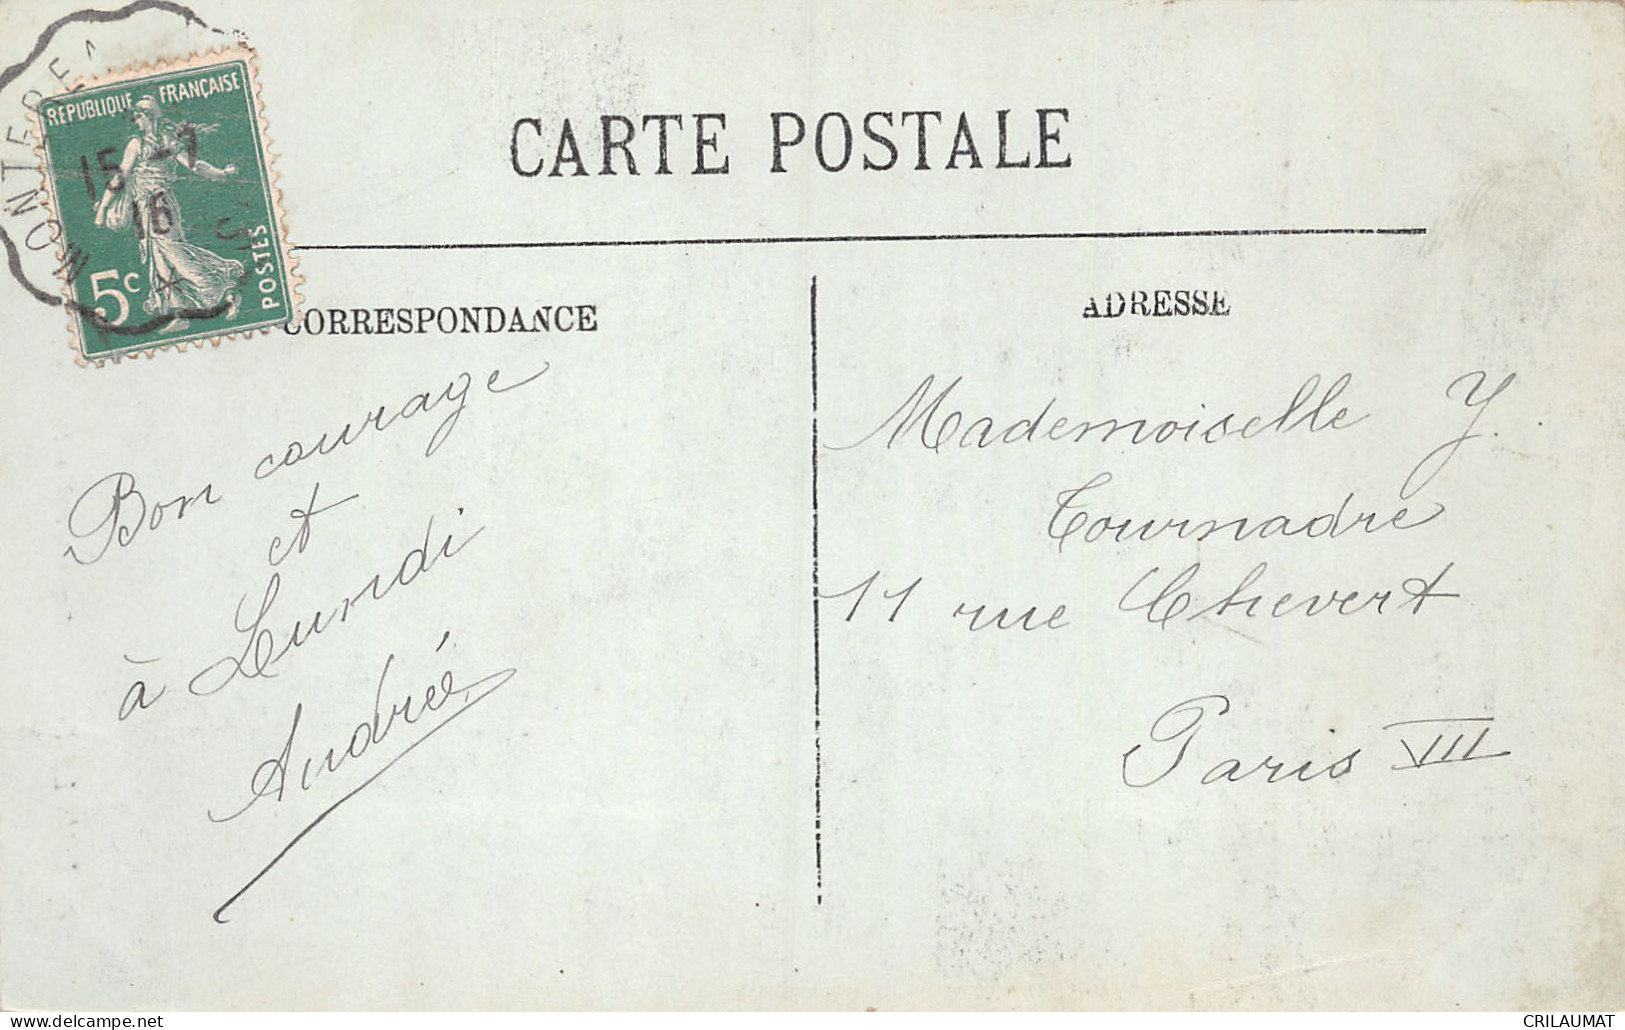 REPUBLIQUE FRANÇAISE
15 -7
16
5c POSTES
CARTE POSTALE
CORRESPONDANCE
Bon courage
et
à Lundi
Andrée
ADRESSE
Mademoiselle Y.
Tournadre
11 rue Chevert
Paris VII
www.delcampe.net
CRILAUMAT